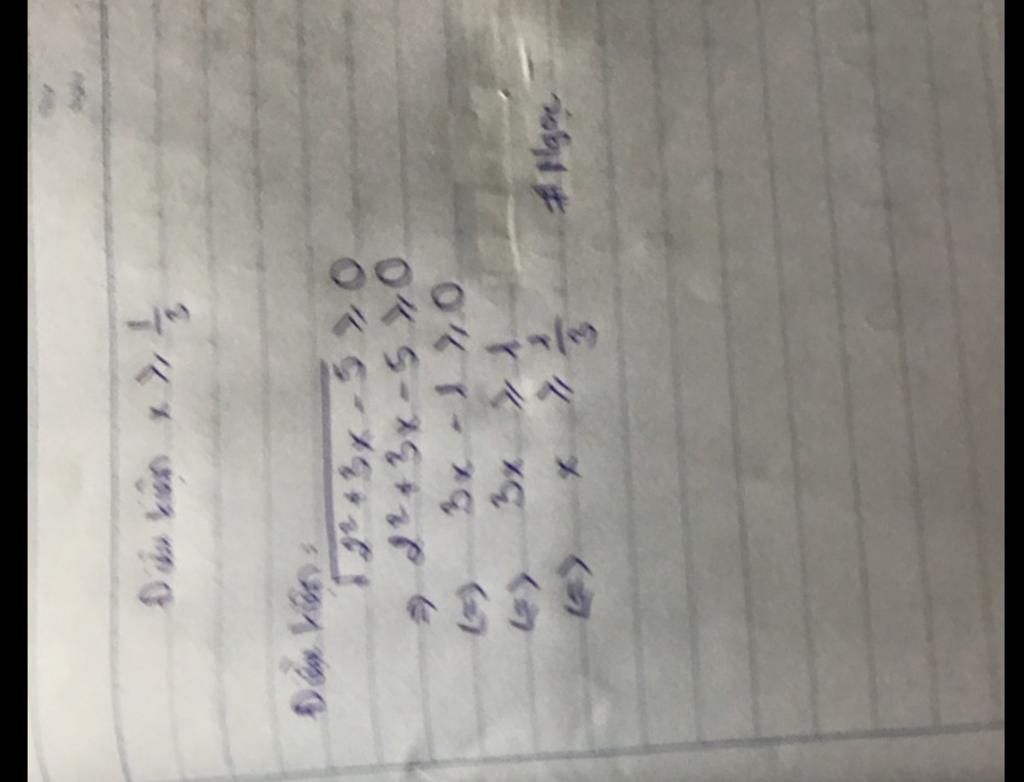 Điều kiện x ≥ 1/3
Điều kiện:
√2²+3x-5 ≥ 0
=> 2²+3x-5 ≥ 0
(=) 3x-1 ≥ 0
(=) 3x ≥ 1
(=) x ≥ 1/3
#Ngọc